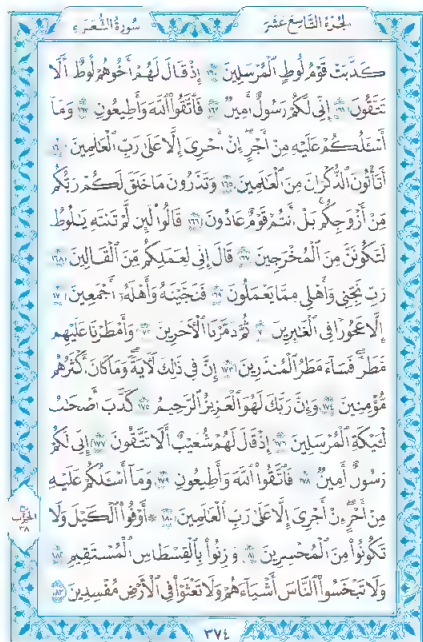 الجزء التاسع عشر
سورة الشعراء
كَذَّبَتْ قَوْمُ لُوطٍ ٱلْمُرْسَلِينَ ١٦٠ إِذْ قَالَ لَهُمْ أَخُوهُمْ لُوطٌ أَلَا
تَتَّقُونَ ١٦١ إِنِّي لَكُمْ رَسُولٌ أَمِينٌ ١٦٢ فَٱتَّقُوا۟ ٱللَّهَ وَأَطِيعُونِ ١٦٣ وَمَآ
أَسْـَٔلُكُمْ عَلَيْهِ مِنْ أَجْرٍ إِنْ أَجْرِيَ إِلَّا عَلَىٰ رَبِّ ٱلْعَـٰلَمِينَ ١٦٤
أَتَأْتُونَ ٱلذُّكْرَانَ مِنَ ٱلْعَـٰلَمِينَ ١٦٥ وَتَذَرُونَ مَا خَلَقَ لَكُمْ رَبُّكُم
مِّنْ أَزْوَٰجِكُم بَلْ أَنتُمْ قَوْمٌ عَادُونَ ١٦٦ قَالُوا۟ لَئِن لَّمْ تَنتَهِ يَـٰلُوطُ
لَتَكُونَنَّ مِنَ ٱلْمُخْرَجِينَ ١٦٧ قَالَ إِنِّي لِعَمَلِكُم مِّنَ ٱلْقَالِينَ ١٦٨
رَبِّ نَجِّنِي وَأَهْلِي مِمَّا يَعْمَلُونَ ١٦٩ فَنَجَّيْنَـٰهُ وَأَهْلَهُۥٓ أَجْمَعِينَ ١٧٠
إِلَّا عَجُوزًا فِي ٱلْغَـٰبِرِينَ ١٧١ ثُمَّ دَمَّرْنَا ٱلْـَٔاخَرِينَ ١٧٢ وَأَمْطَرْنَا عَلَيْهِم
مَّطَرًا فَسَآءَ مَطَرُ ٱلْمُنذَرِينَ ١٧٣ إِنَّ فِي ذَٰلِكَ لَـَٔايَةً وَمَا كَانَ أَكْثَرُهُم
مُّؤْمِنِينَ ١٧٤ وَإِنَّ رَبَّكَ لَهُوَ ٱلْعَزِيزُ ٱلرَّحِيمُ ١٧٥ كَذَّبَ أَصْحَـٰبُ
لْـَٔيْكَةِ ٱلْمُرْسَلِينَ ١٧٦ إِذْ قَالَ لَهُمْ شُعَيْبٌ أَلَا تَتَّقُونَ ١٧٧ إِنِّي لَكُمْ
رَسُولٌ أَمِينٌ ١٧٨ فَٱتَّقُوا۟ ٱللَّهَ وَأَطِيعُونِ ١٧٩ وَمَآ أَسْـَٔلُكُمْ عَلَيْهِ
مِنْ أَجْرٍ إِنْ أَجْرِيَ إِلَّا عَلَىٰ رَبِّ ٱلْعَـٰلَمِينَ ١٨٠ ۞ أَوْفُوا۟ ٱلْكَيْلَ وَلَا
تَكُونُوا۟ مِنَ ٱلْمُخْسِرِينَ ١٨١ وَزِنُوا۟ بِٱلْقِسْطَاسِ ٱلْمُسْتَقِيمِ ١٨٢
وَلَا تَبْخَسُوا۟ ٱلنَّاسَ أَشْيَآءَهُمْ وَلَا تَعْثَوْا۟ فِي ٱلْأَرْضِ مُفْسِدِينَ ١٨٣
ربع
الحزب
٣٨
٣٧٤